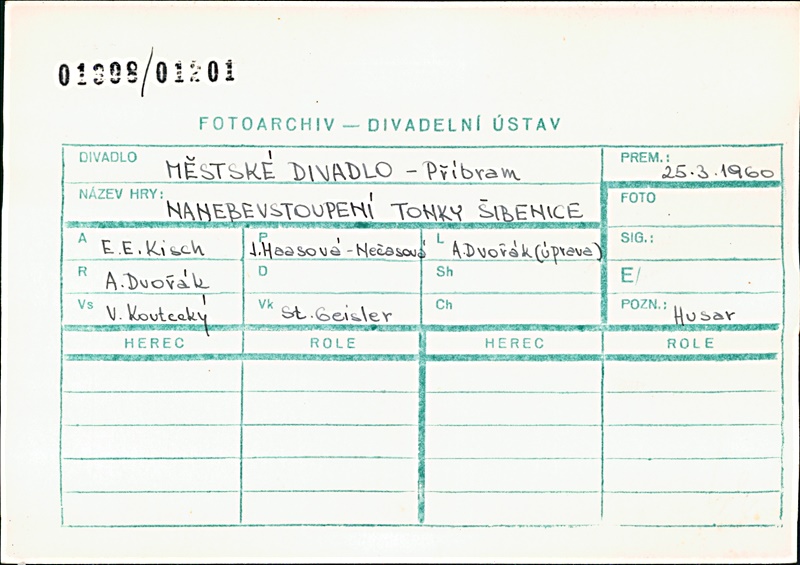 01308/01201
FOTOARCHIV — DIVADELNÍ ÚSTAV
DIVADLO MĚSTSKÉ DIVADLO - Příbram PREM.: 25.3.1960
NÁZEV HRY: NANEBEVSTOUPENÍ TONKY ŠIBENICE FOTO
A E.E.Kisch P J.Haasová-Nečasová L A.Dvořák (úprava) SIG.:
R A.Dvořák D Sh E/
Vs V. Koutecký Vk St. Geisler Ch POZN.: Husar
HEREC ROLE HEREC ROLE